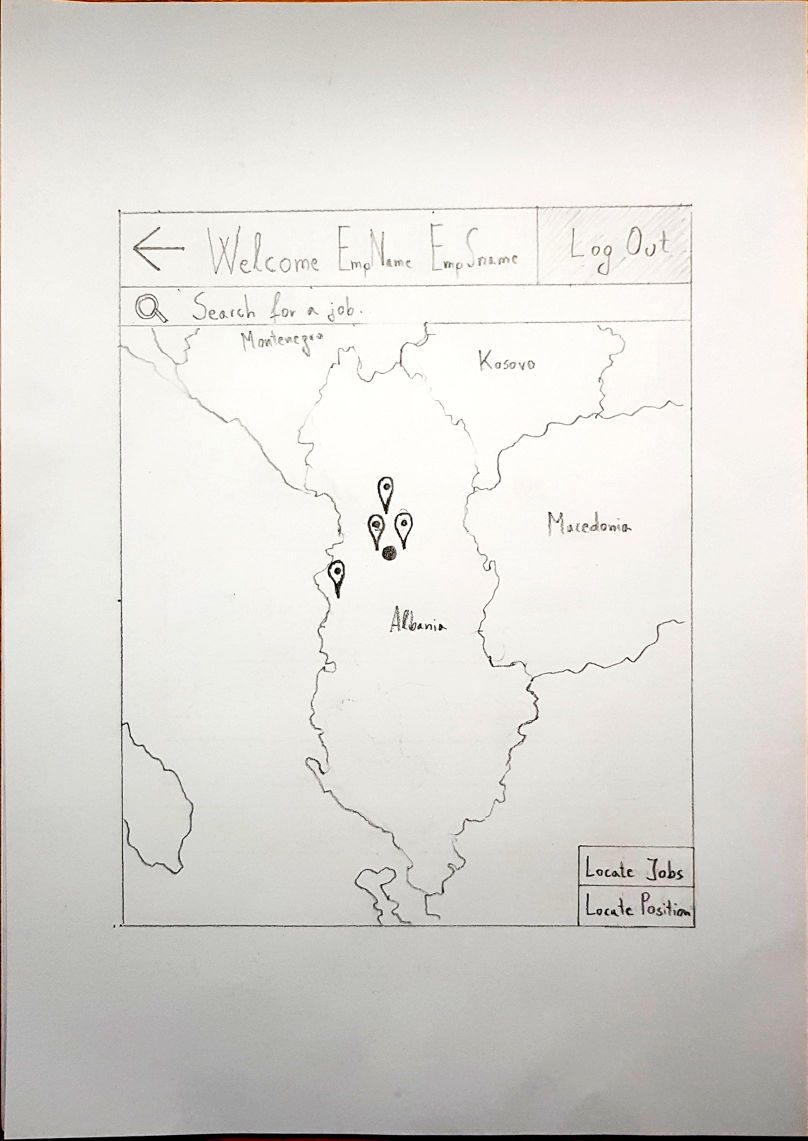 Welcome EmpName EmpSname
Log Out
Search for a job.
Montenegro
Kosovo
Macedonia
Albania
Locate Jobs
Locate Position